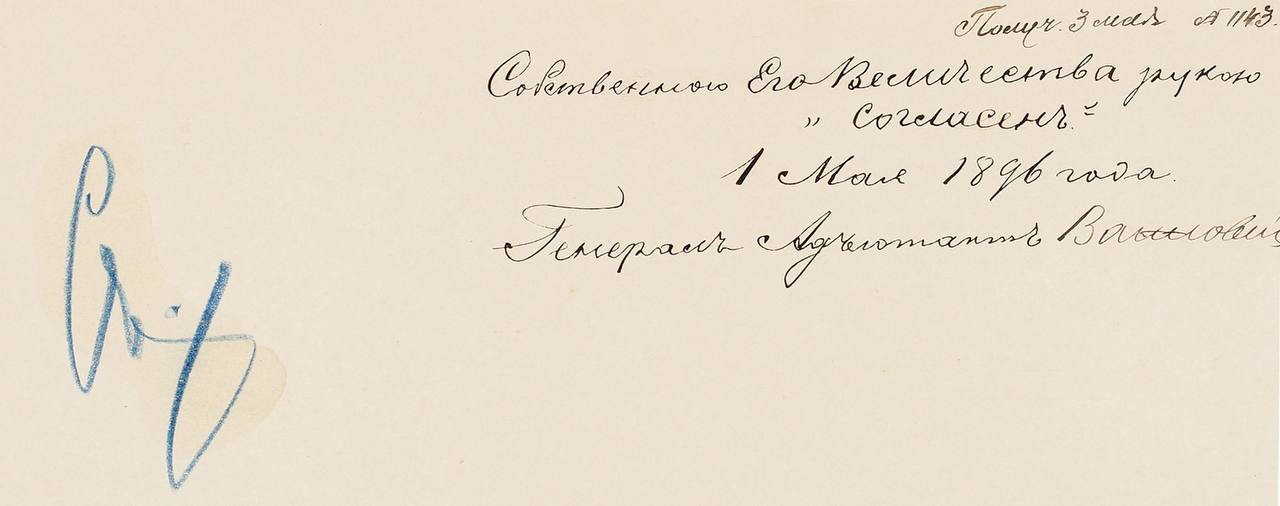 Получ. 3 мая № 1143.
Собственною Его Величества рукою
„ согласенъ."
1 Мая 1896 года.
Генералъ Адъютантъ Ванновскій